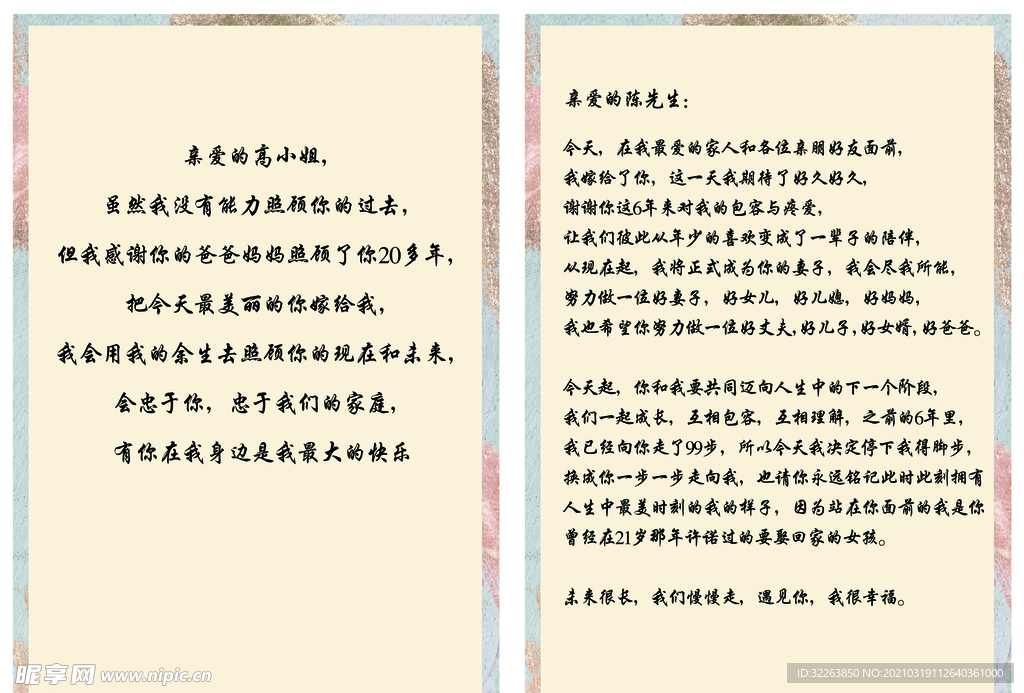 亲爱的高小姐，
虽然我没有能力照顾你的过去，
但我感谢你的爸爸妈妈照顾了你20多年，
把今天最美丽的你嫁给我，
我会用我的余生去照顾你的现在和未来，
会忠于你，忠于我们的家庭，
有你在我身边是我最大的快乐
亲爱的陈先生：
今天，在我最爱的家人和各位亲朋好友面前，
我嫁给了你，这一天我期待了好久好久，
谢谢你这6年来对我的包容与疼爱，
让我们彼此从年少的喜欢变成了一辈子的陪伴，
从现在起，我将正式成为你的妻子，我会尽我所能，
努力做一位好妻子，好女儿，好儿媳，好妈妈，
我也希望你努力做一位好丈夫，好儿子，好女婿，好爸爸。
今天起，你和我要共同迈向人生中的下一个阶段，
我们一起成长，互相包容，互相理解，之前的6年里，
我已经向你走了99步，所以今天我决定停下我得脚步，
换成你一步一步走向我，也请你永远铭记此时此刻拥有
人生中最美时刻的我的样子，因为站在你面前的我是你
曾经在21岁那年许诺过的要娶回家的女孩。
未来很长，我们慢慢走，遇见你，我很幸福。
昵享网 www.nipic.cn
ID:32263850 NO:20210319112640361000